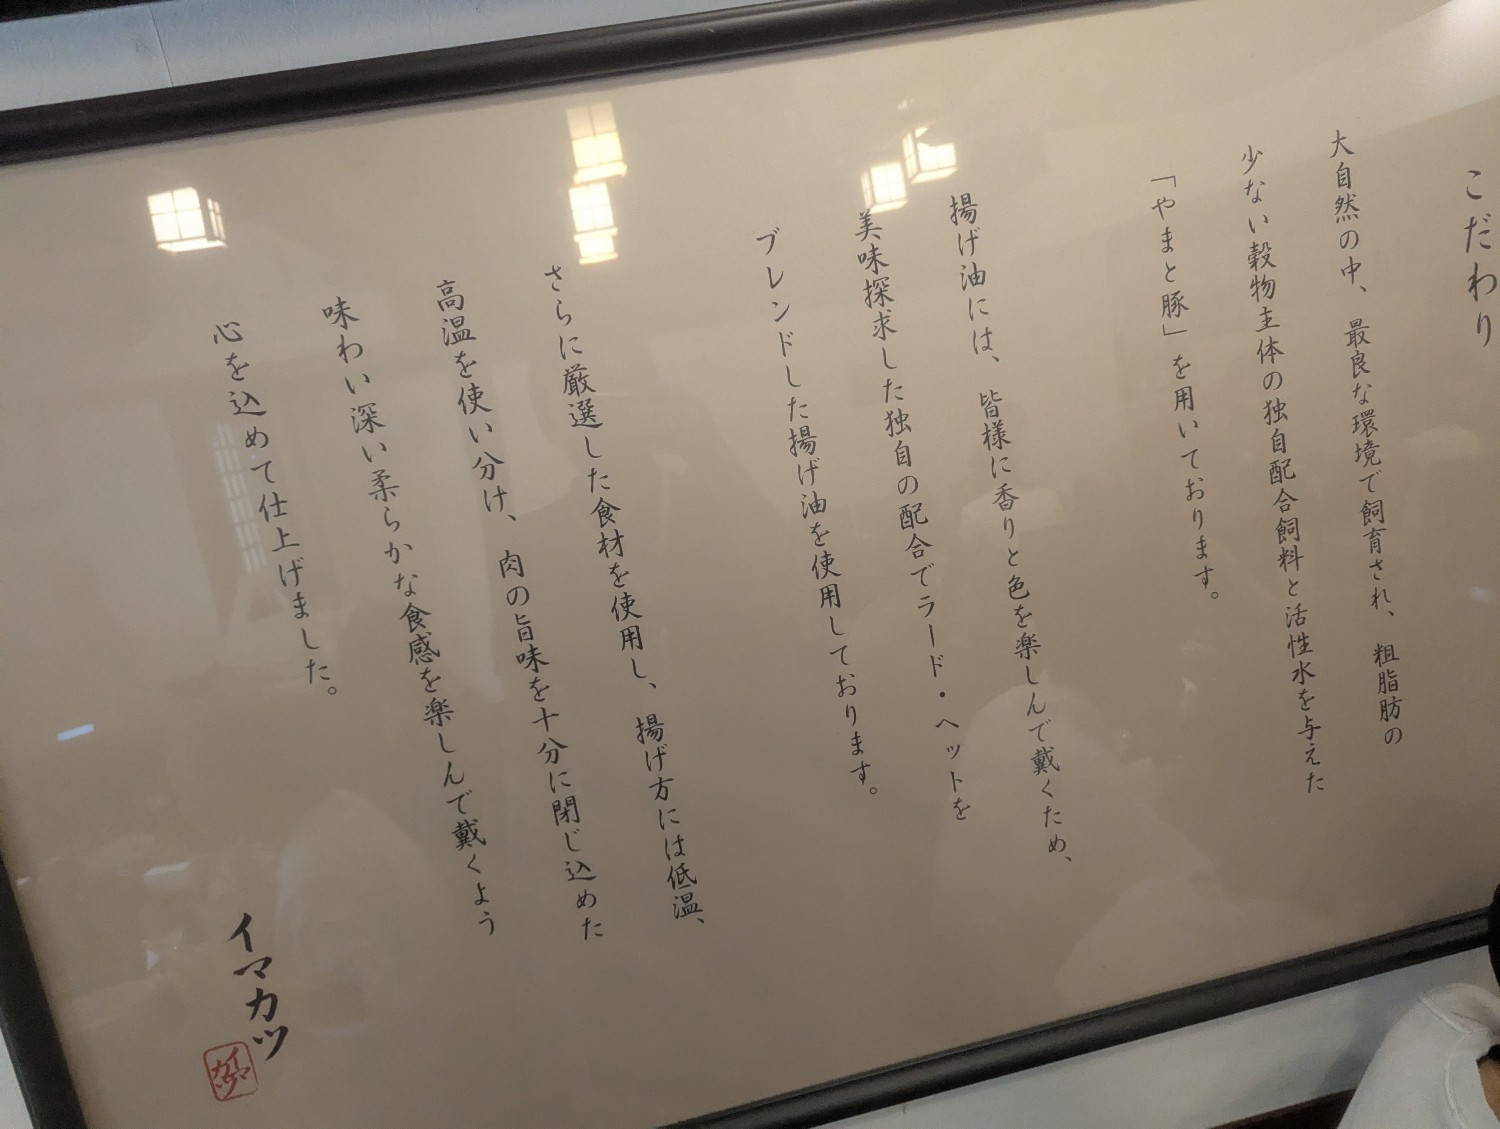 こだわり
大自然の中、最良な環境で飼育され、粗脂肪の
少ない穀物主体の独自配合飼料と活性水を与えた
「やまと豚」を用いております。
揚げ油には、皆様に香りと色を楽しんで戴くため、
美味探求した独自の配合でラード・ヘットを
ブレンドした揚げ油を使用しております。
さらに厳選した食材を使用し、揚げ方には低温、
高温を使い分け、肉の旨味を十分に閉じ込めた
味わい深い柔らかな食感を楽しんで戴くよう
心を込めて仕上げました。
イマカツ
イマカツ